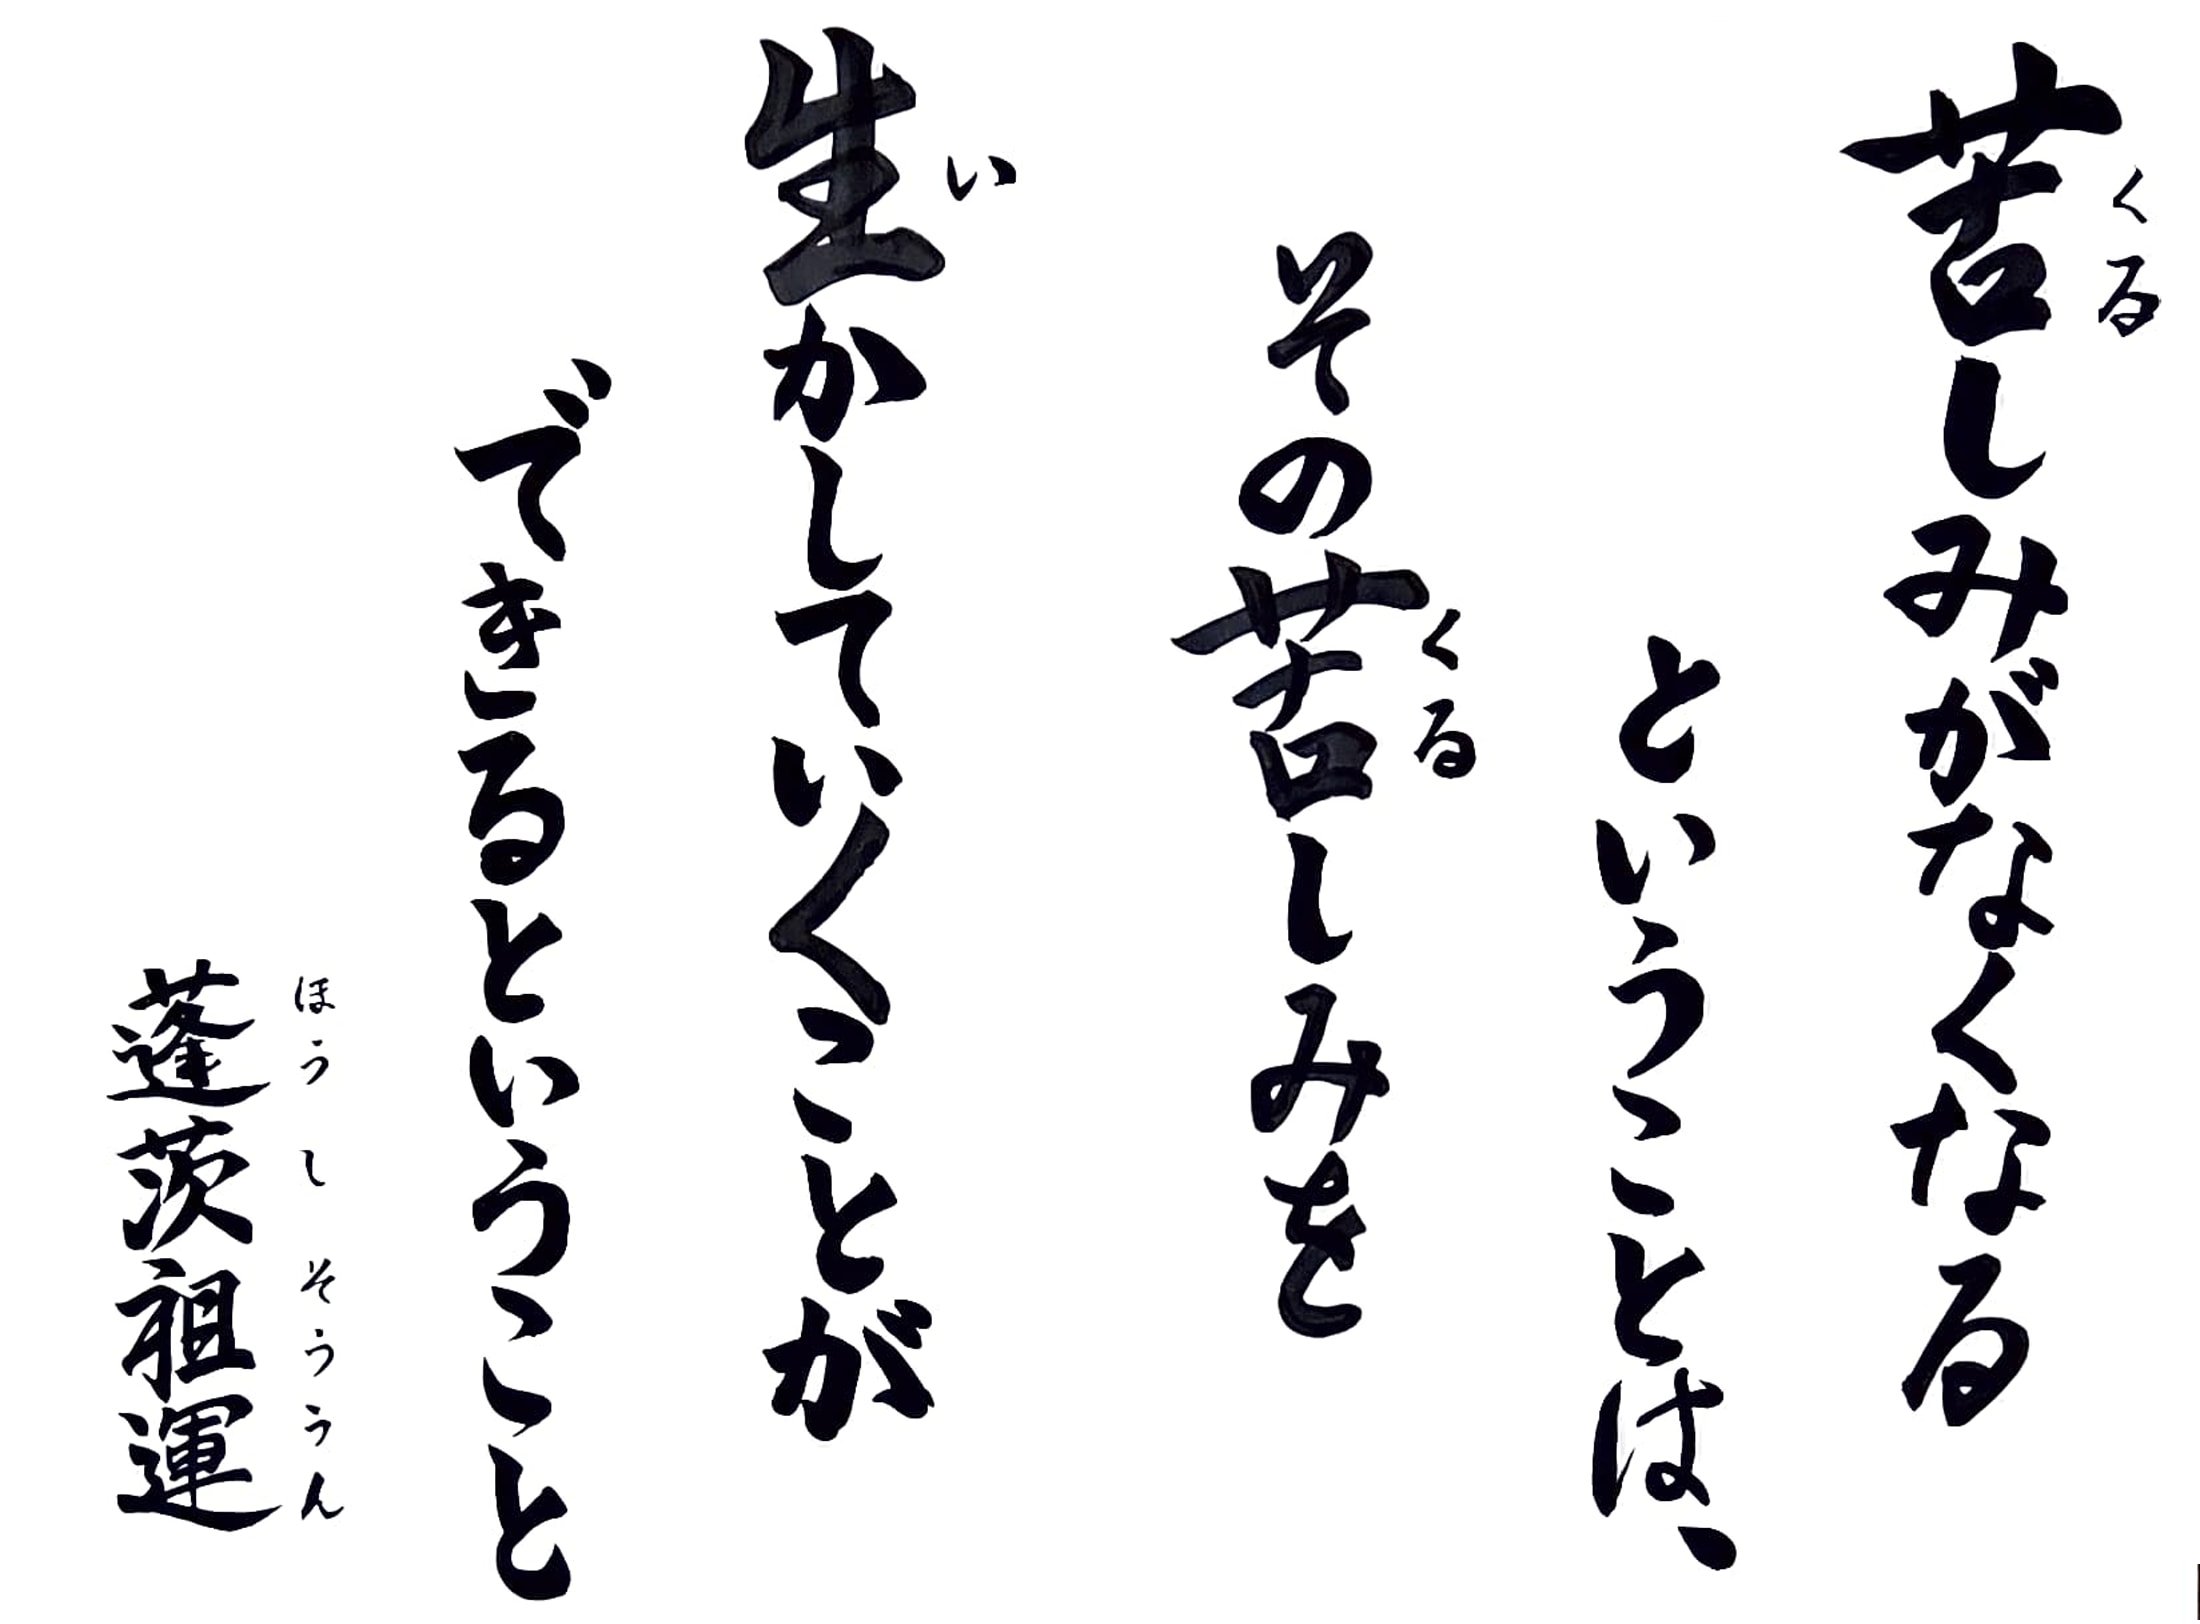 苦しみがなくなる
くる
ということは、
その苦しみを
くる
生かしていくことが
い
できるということ
蓬茨祖運
ほうしそううん